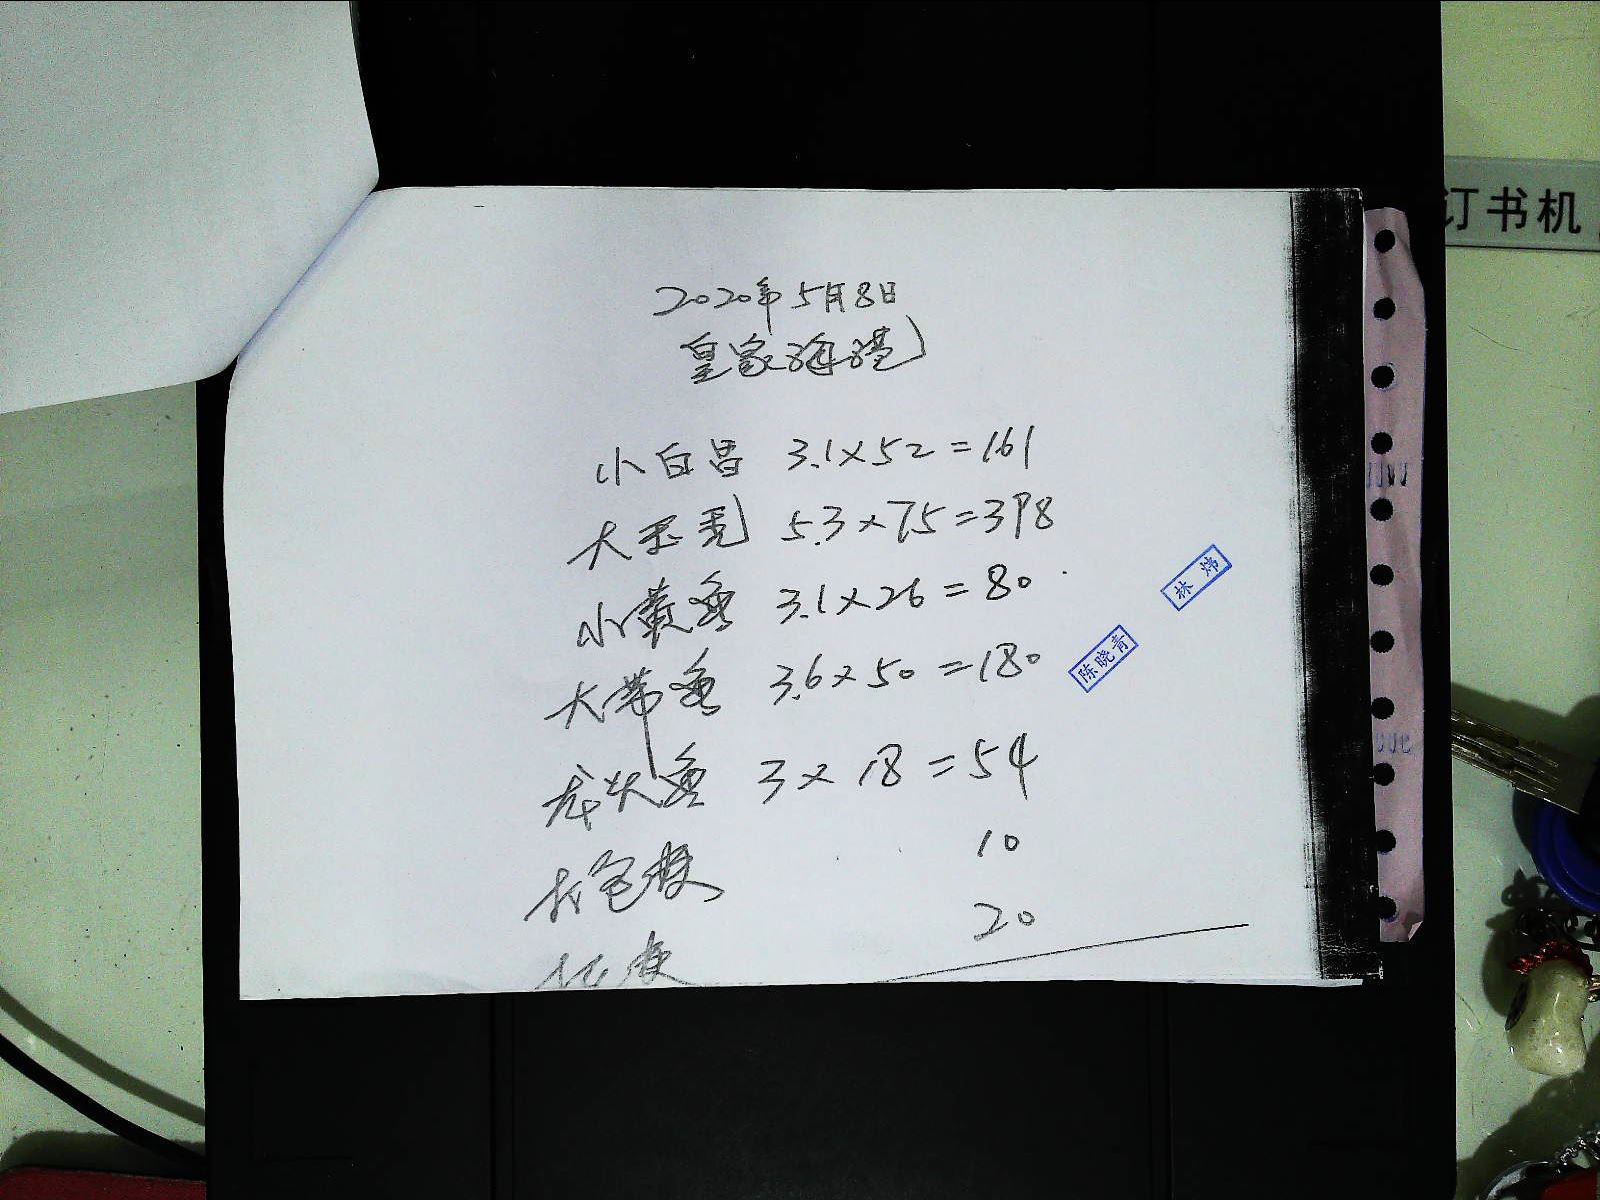 订书机
2020年5月8日
皇家海港
小白昌 3.1×52=161
大玉秃 5.3×75=398
小黄鱼 3.1×26=80
大带鱼 3.6×50=180
龙头鱼 3×18=54
打包费 10
20
林炜
陈晓青